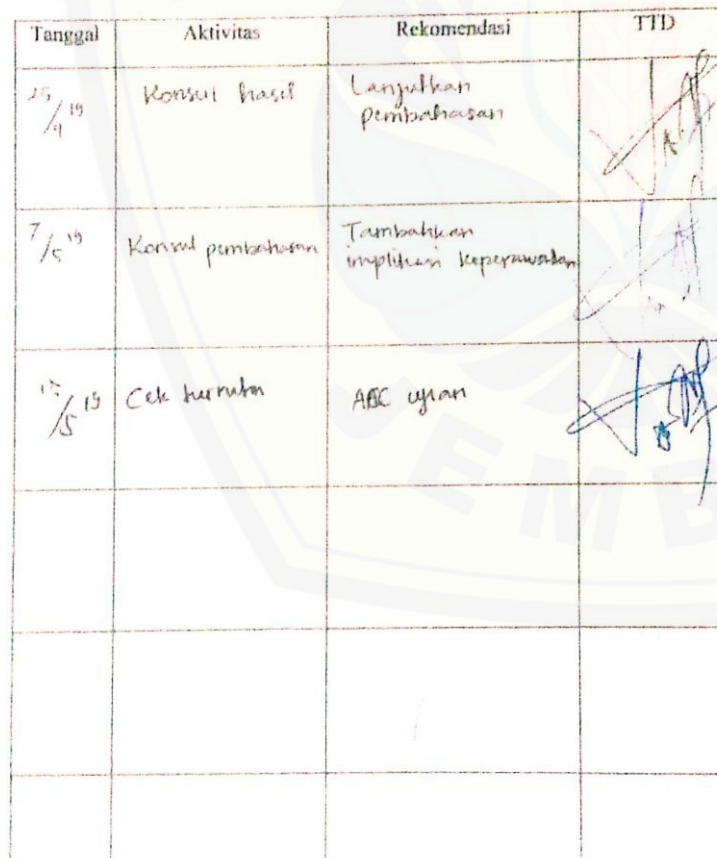 Tanggal Aktivitas Rekomendasi TTD
25/4 19 Konsul hasil Lanjutkan
pembahasan
7/5 19 Konsul pembahasan Tambahkan
implikasi keperawatan
/5 19 Cek ACC ujian
JEMB